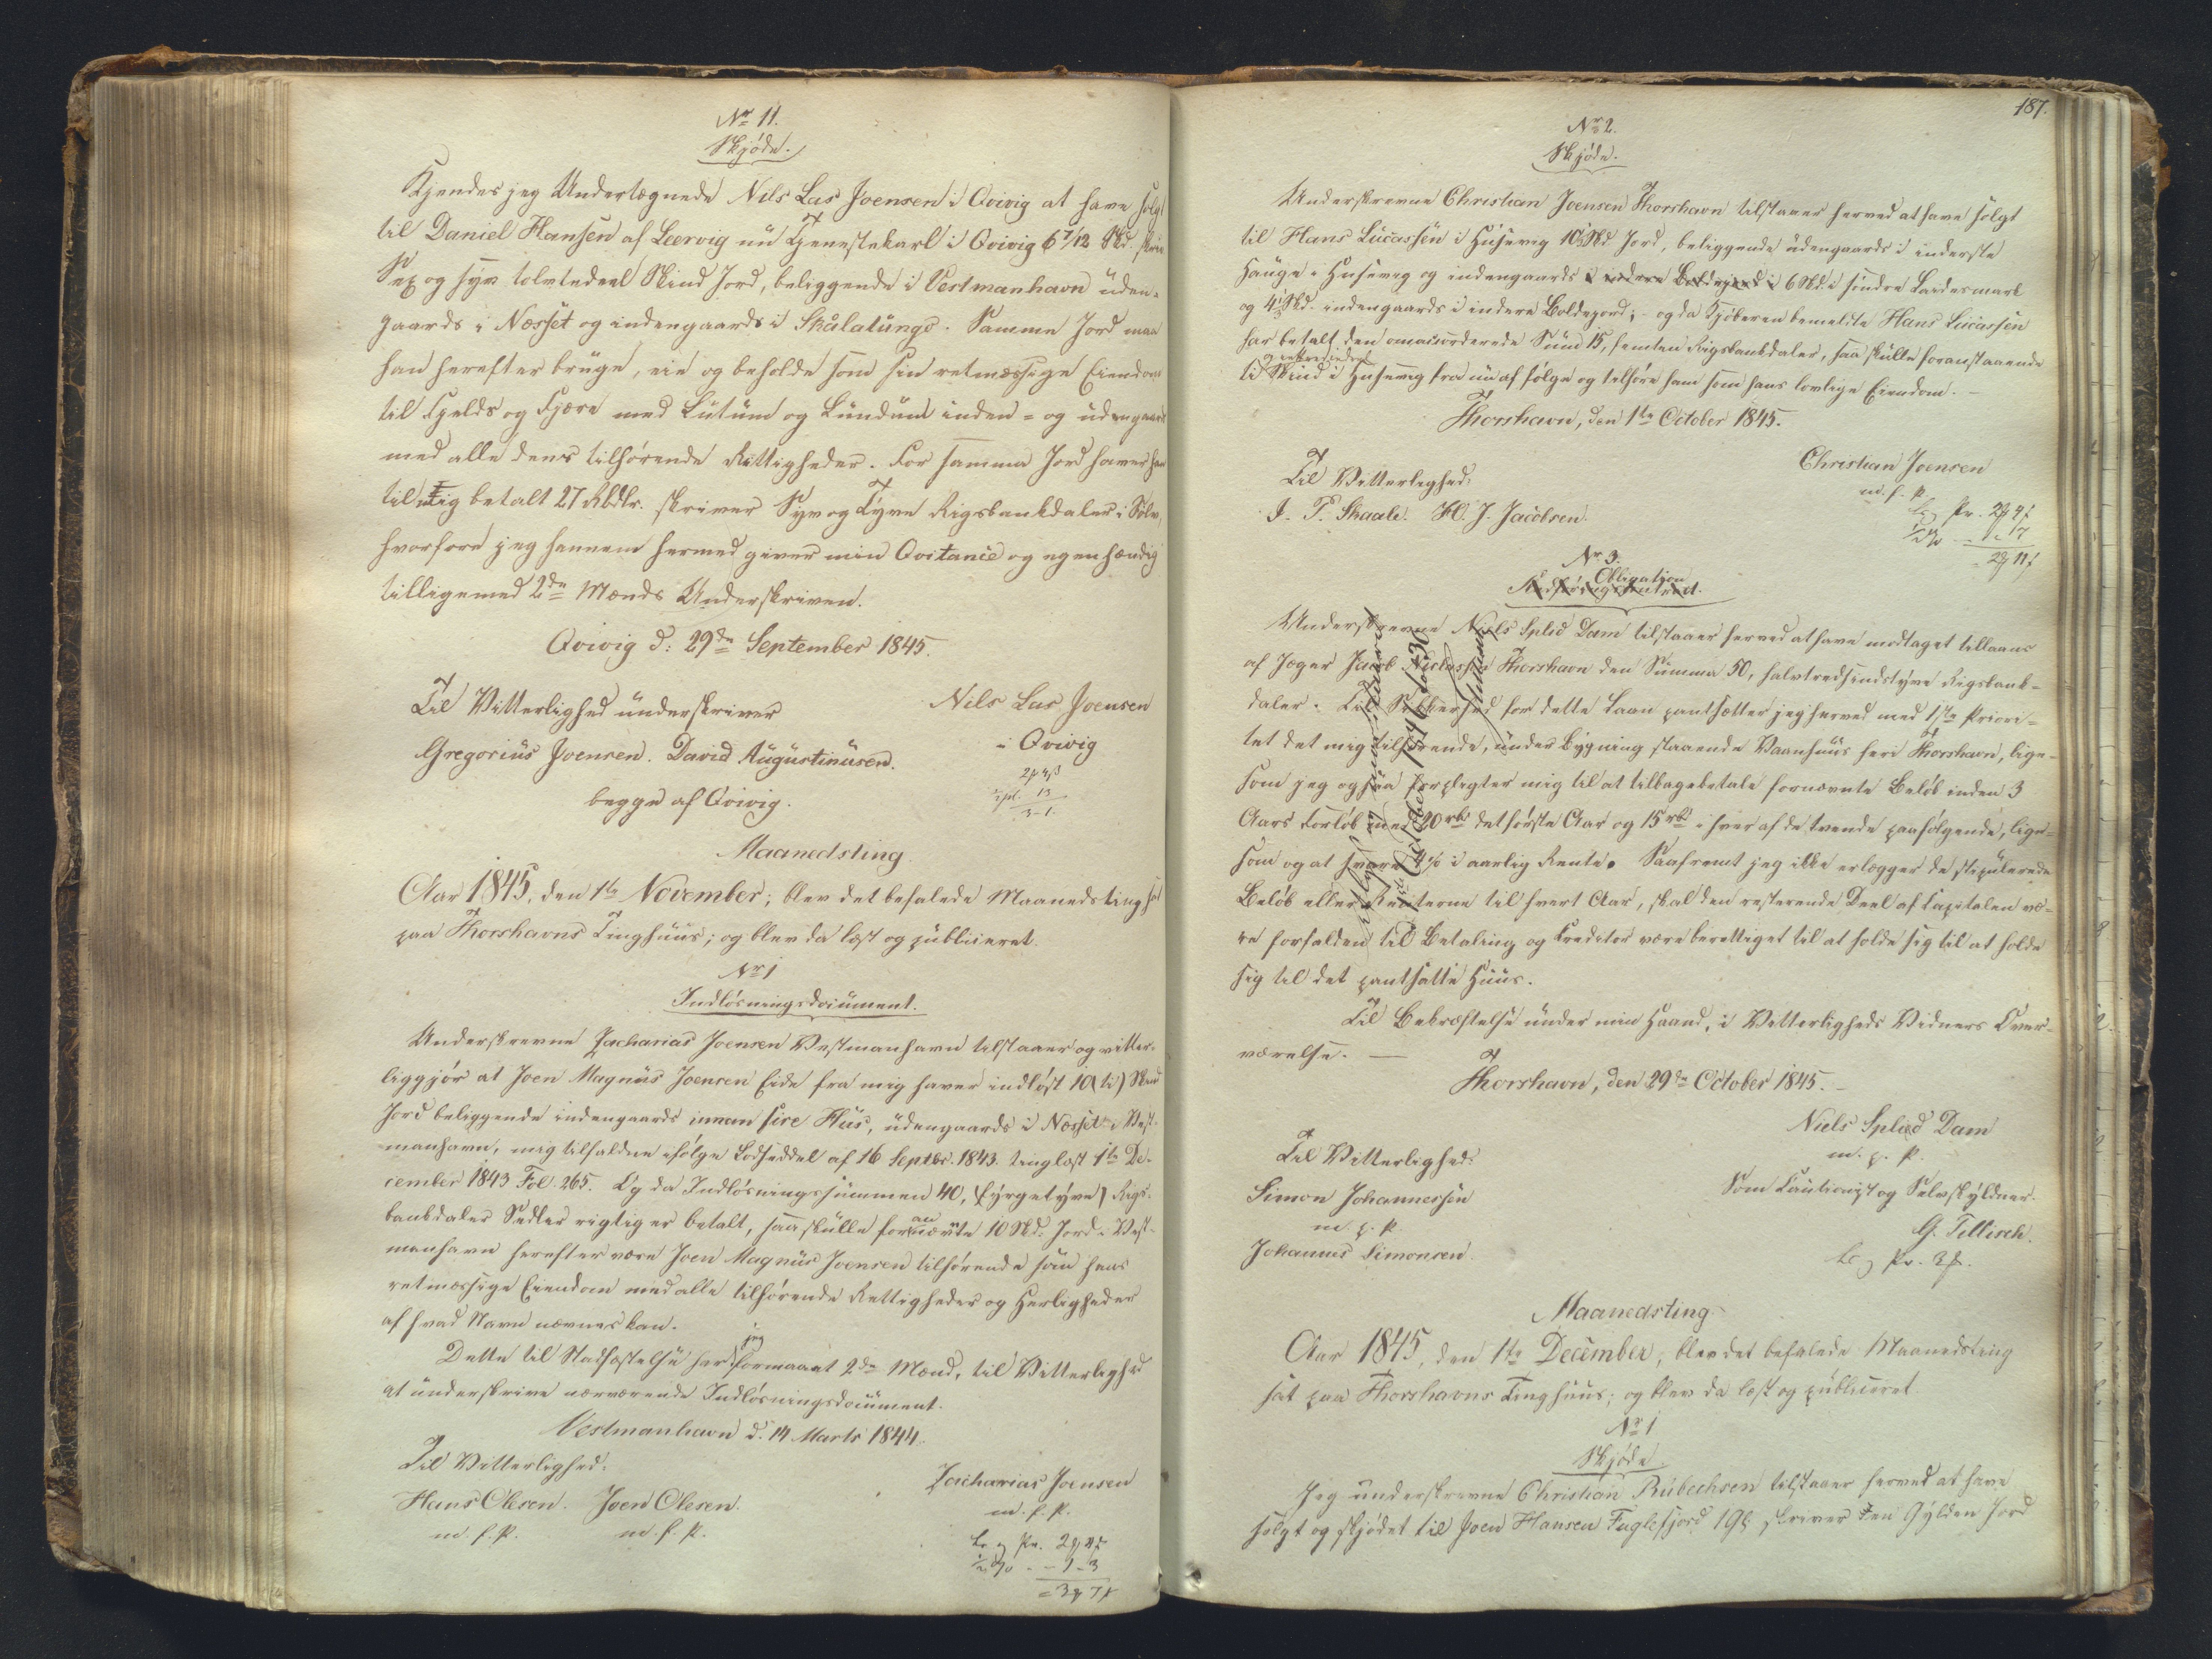 Nr 11.
Skjöde.
Kjendes jeg Undertegnede Nils Las Joensen i Qvivig at have solgt
til Daniel Hansen af Leervig nu Tjenestekarl i Qvivig 6 7/12 Skd. skriver
Sex og syv tolvtedeel Skind Jord, beliggende i Vestmanhavn uden-
gaards i Næsset og indengaards i Skålatüngs. Samme Jord maa
han herefter brüge, eie og beholde som sin retmæssige Eiendom
til Fjelds og Fjære med Lutum og Lundum inden- og udengaards
med alle dens tilhörende Rettigheder. For samme Jord haver han
til mig betalt 27 Rbdlr. skriver Syv og Tyve Rigsbankdaler i Sölv,
hvorfore jeg hannem hermed giver min Qvitance og egenhændig
tilligemed 2de Mænds Underskriven.
Qvivig d: 29de September 1845.
Til Vitterlighed ünderskriver
Nils Las Joensen
Gregoriüs Joensen. David Augüstinüsen.
i Qvivig
begge af Qvivig.
3-1.
Maanedsting
Aar 1845, den 1te November; blev det befalede Maanedsting sat
paa Thorshavns Tinghüüs; og blev da læst og publiceret.
Nr 1
Indlösningsdocüment.
Underskrevne Zacharias Joensen Vestmanhavn tilstaaer og vitter-
liggjör at Joen Magnüs Joensen Eide fra mig haver indlöst 10 (ti) Skind
Jord beliggende indengaards innan fire Hüs, üdengaards i Næsset i Vest-
manhavn, mig tilfaldne ifölge Lodseddel af 16 Septbr. 1843. tinglæst 1te De-
cember 1843 Fol. 265. Og da Indlösningssummen 40, (fyrgetyve) Rigs-
bankdaler Sedler rigtig er betalt, saa skulle fornævnte 10 Skd. Jord i Vest-
manhavn herefter være Joen Magnüs Joensen tilhörende som hans
retmæssige Eiendom med alle tilhörende Rettigheder og Herligheder
af hvad Navn nævnes kan.
Dette til Stadfæstelse har jeg formaaet 2de Mænd, til Vitterlighed
at ünderskrive nærværende Indlösningsdocument.
Vestmanhavn d. 14 Marts 1844.
Til Vitterlighed:
Zacharias Joensen
Hans Olesen. Joen Olesen.
m. f. P.
m. f. P. m. f. P.
187.
Nr 2.
Skjöde.
Underskrevne Christian Joensen Thorshavn tilstaaer herved at have solgt
til Hans Lucassen i Husevig 10 1/3 Skd Jord, beliggende üdengaards i inderste
Hauge i Husevig og indengaards i indere Boldegjord i 6 Skd. i söndre Lardesmark
og 4 1/3 Skd. indengaards i indere Boldegjord; - og da Kjöberen bemeldte Hans Lucassen
har betalt den omaccorderede Sum 15, femten Rigsbankdaler, saa skulle foranstaaende
ti og entrediedeel Skind i Husevig fra nu af fölge og tilhöre ham som hans lovlige Eiendom. -
Thorshavn, den 1te October 1845.
Til Vitterlighed:
Christian Joensen
J. P. Skaale. H. J. Jacobsen.
Nr 3.
Obligation
Underskrevne Niels Splid Dam tilstaaer herved at have modtaget tillaans
af Jæger Jacob Thorshavn den Summa 50, halvtredsindstyve Rigsbank-
daler. Til Sikkerhed for dette Laan pantsætter jeg herved med 1ste Priori-
tet det mig tilhörende, ünder Bygning staaende Vaanhüüs heri Thorshavn, lige-
som jeg ogsaa forpligter mig til at tilbagebetale fornævnte Belöb inden 3
Aars Forlöb med 20 rbd det förste Aar og 15 rbd i hver af de tvende paafölgende, lige-
som og at svare 4% i aarlig Rente. Saafremt jeg ikke erlægger de stipülerede
Belöb eller Renterne til hvert Aar, skal den resterende Deel af Capitalen væ-
re forfalden til Betaling og Creditor være berettiget til at holde sig til at holde
sig til det pantsatte Hüüs.
Til Bekræftelse ünder min Haand, i Vitterligheds Vidners Over-
værelse. -
Thorshavn, den 29de October 1845. -
Niels Splid Dam
Til Vitterlighed:
m. p. P.
Simon Johannessen
Som Cautionist og Selvskyldner.
m. p. P.
G. Tillisch.
Johannes Simonsen.
Maanedsting
Aar 1845, den 1te December, blev det befalede Maanedsting
sat paa Thorshavns Tinghuus; og blev da læst og publiceret
Nr 1
Skjöde
Jeg ünderskrevne Christian Rübechsen tilstaaer herved at have
solgt og skjödet til Joen Hansen Fuglefjord 1 G, skriver Een Gylden Jord